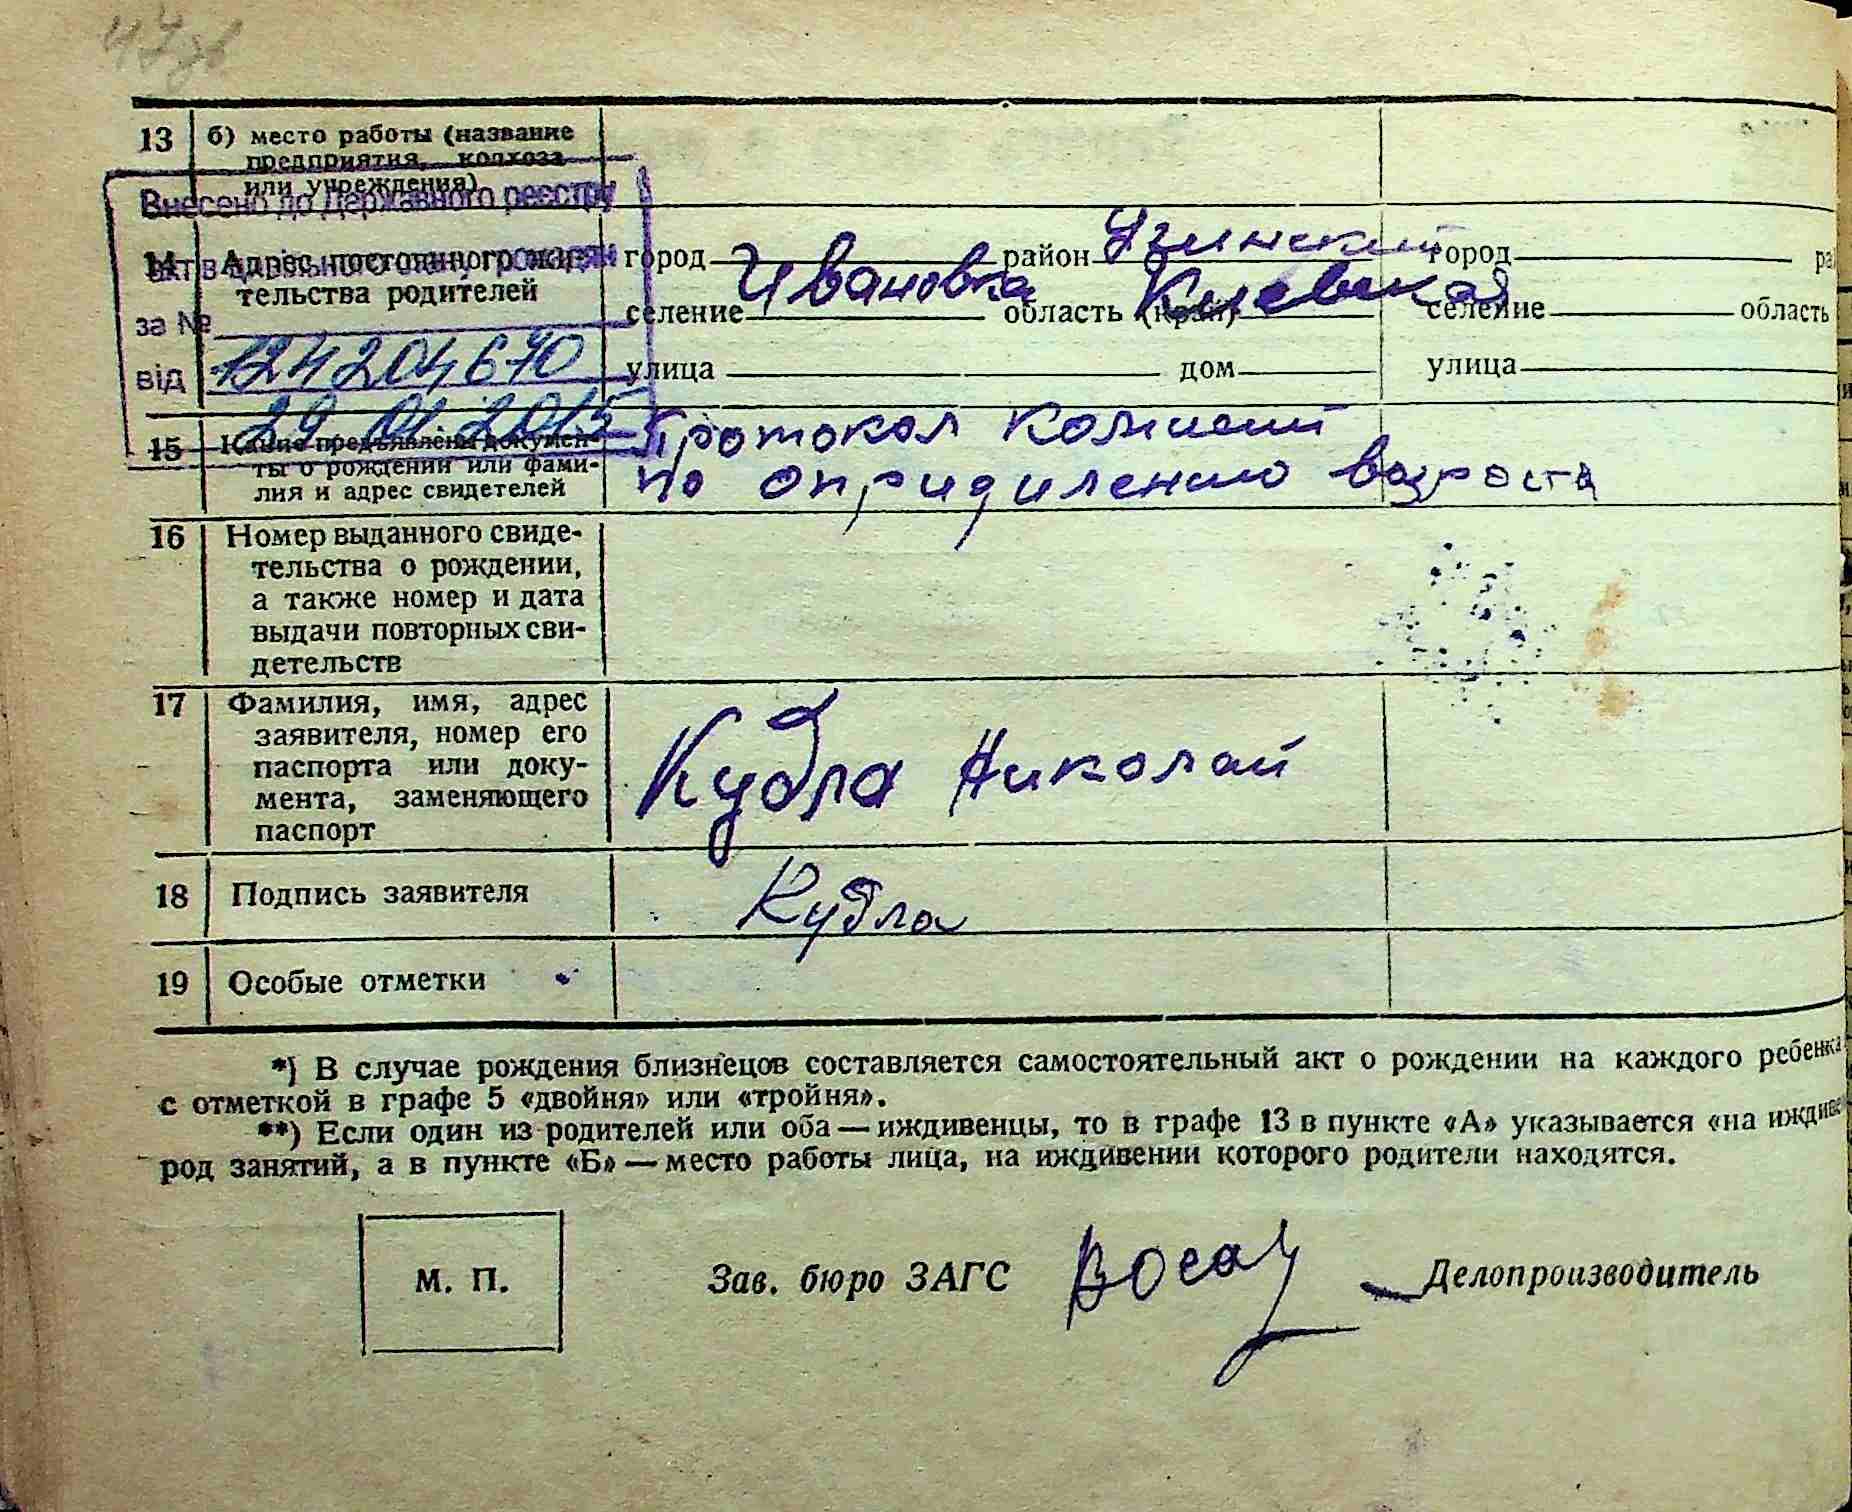 47 зв
13 б) место работы (название
предприятия, колхоза
или учреждения)
Внесено до Державного реєстру
актів цивільного стану громадян
за №
124204670
від
29 01 2015
14 Адрес постоянного жи-
тельства родителей
город район Узинский
селение Ивановка область (край) Киевская
улица дом
город
селение область
улица
15 Какие предъявлены докумен-
ты о рождении или фами-
лия и адрес свидетелей
Протокол комисии
по опридилению возроста
16 Номер выданного свиде-
тельства о рождении,
а также номер и дата
выдачи повторных сви-
детельств
17 Фамилия, имя, адрес
заявителя, номер его
паспорта или доку-
мента, заменяющего
паспорт
Кубла Николай
18 Подпись заявителя
Кубла
19 Особые отметки
*) В случае рождения близнецов составляется самостоятельный акт о рождении на каждого ребенка
с отметкой в графе 5 «двойня» или «тройня».
**) Если один из родителей или оба — иждивенцы, то в графе 13 в пункте «А» указывается «на иждиве
род занятий, а в пункте «Б» — место работы лица, на иждивении которого родители находятся.
М. П.
Зав. бюро ЗАГС
Делопроизводитель